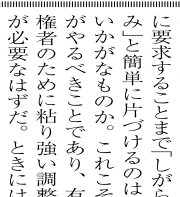 に要求することまで「しがら
み」と簡単に片づけるのは
いかがなものか。これこそ
がやるべきことであり、有
権者のために粘り強い調整
が必要なはずだ。ときには